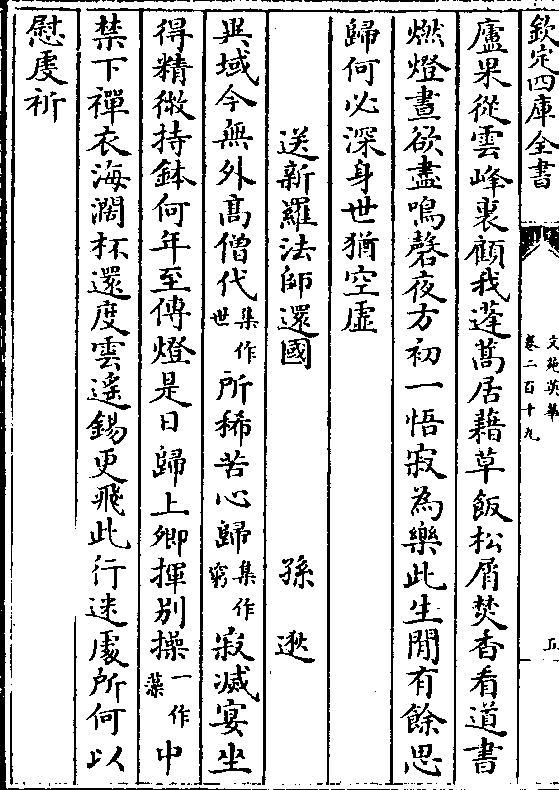 欽定四庫全書
文苑英華
卷二百十九
五
廬果從雲峰裏顧我蓬蒿居藉草飯松屑焚香看道書
燃燈晝欲盡鳴磬夜方初一悟寂為樂此生閒有餘思
歸何必深身世猶空虛
送新羅法師還國
孫逖
異域今無外髙僧代集作世所稀苦心歸集作窮寂滅宴坐
得精微持鉢何年至傳燈是日歸上卿揮別操一作藻中
禁下禪衣海濶杯還度雲遙錫更飛此行迷處所何以
慰虔祈